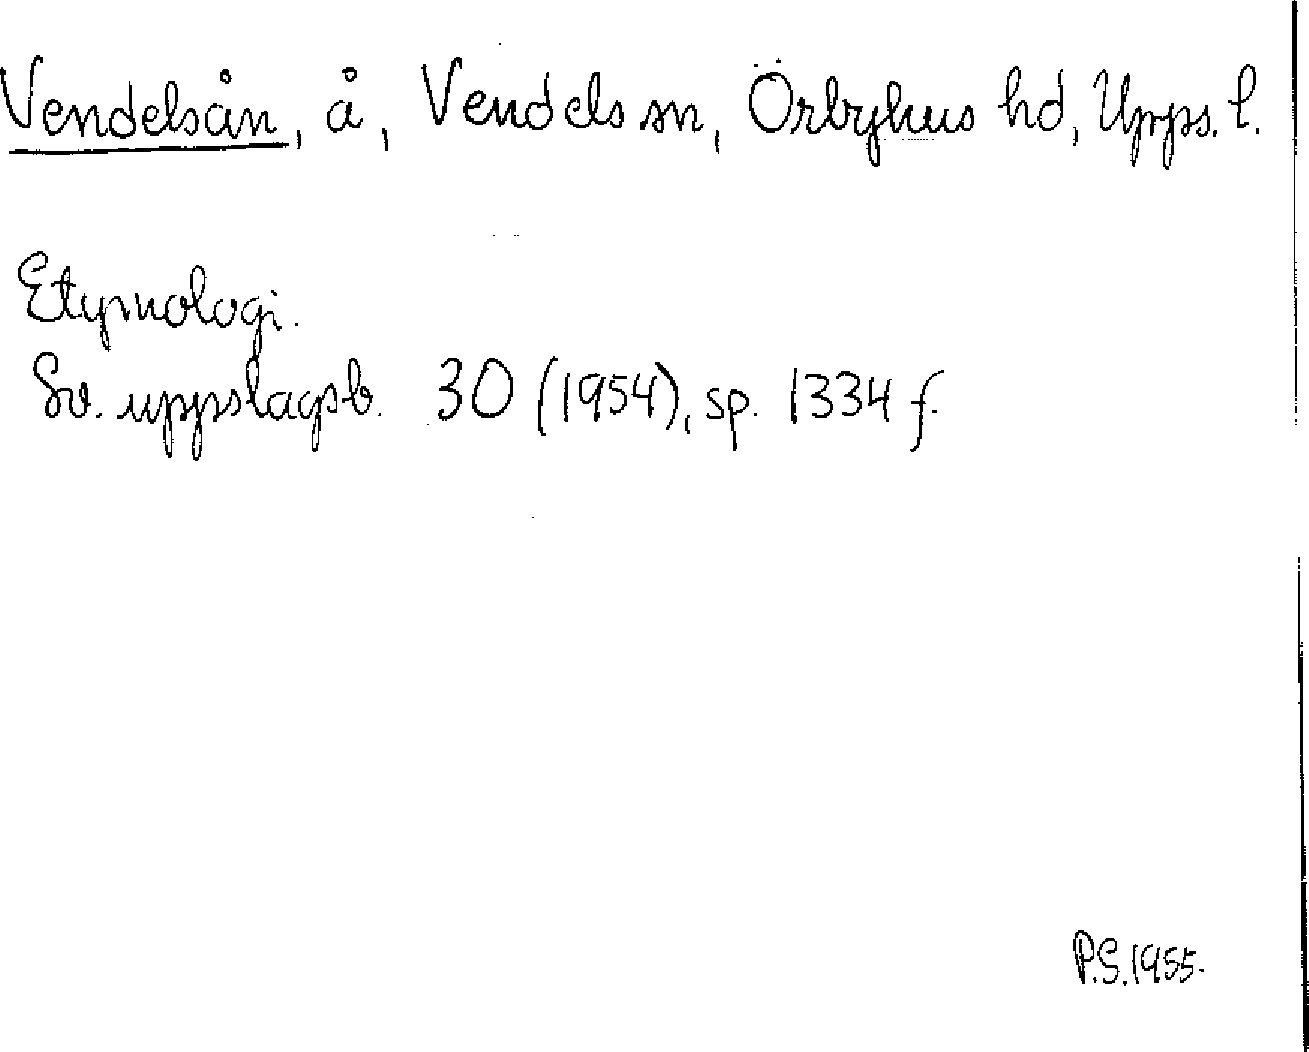 Vendelsån, å, Vendels sn, Örbyhus hd, Upps. l.
Etymologi.
Sv. uppslagsb. 30 (1954), sp. 1334 f.
P.S. 1955.